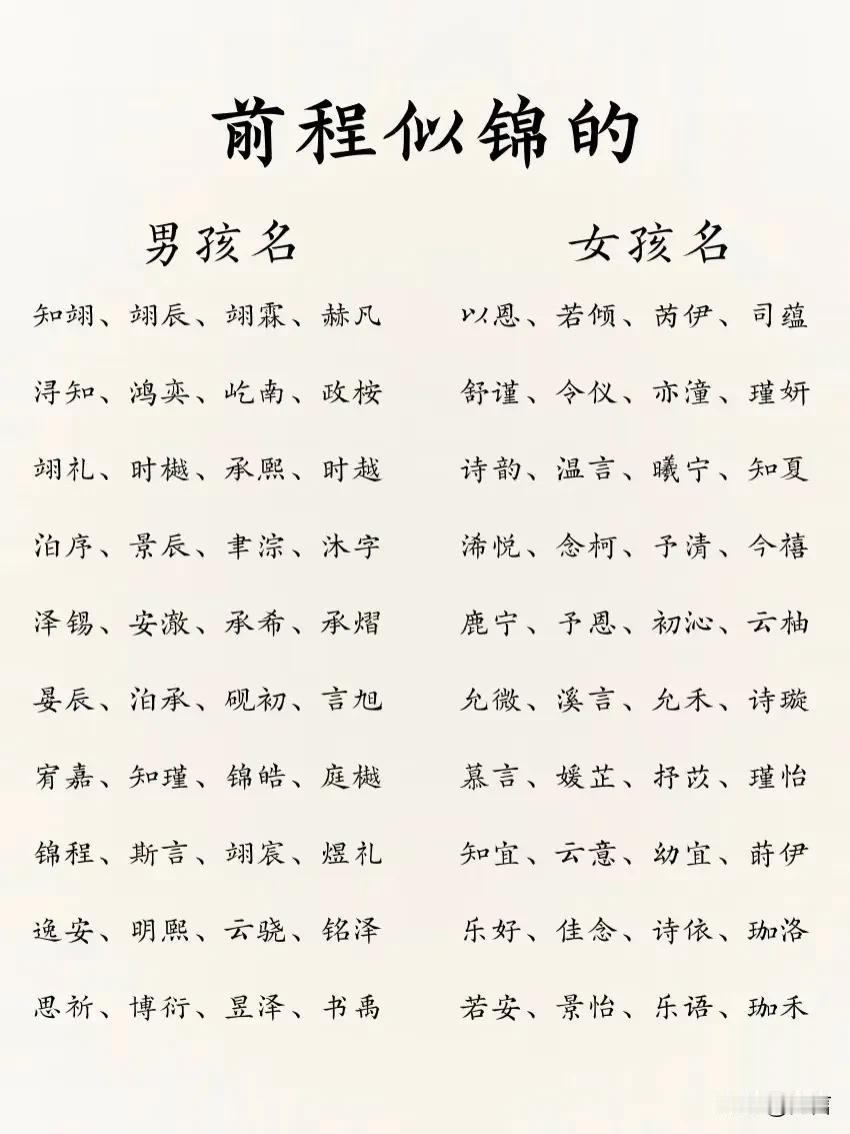 前程似锦的
男孩名
知翊、翊辰、翊霖、赫凡
浔知、鸿奕、屹南、政桉
翊礼、时樾、承熙、时越
泊序、景辰、聿淙、沐字
泽锡、安澈、承希、承熠
晏辰、泊承、砚初、言旭
宥嘉、知瑾、锦皓、庭樾
锦程、斯言、翊宸、煜礼
逸安、明熙、云骁、铭泽
思祈、博衍、昱泽、书禹
女孩名
以恩、若倾、芮伊、司蕴
舒谨、令仪、亦潼、瑾妍
诗韵、温言、曦宁、知夏
浠悦、念柯、予清、今禧
鹿宁、予恩、初沁、云柚
允微、溪言、允禾、诗璇
慕言、媛芷、抒苡、瑾怡
知宜、云意、幼宜、莳伊
乐好、佳念、诗依、珈洛
若安、景怡、乐语、珈禾